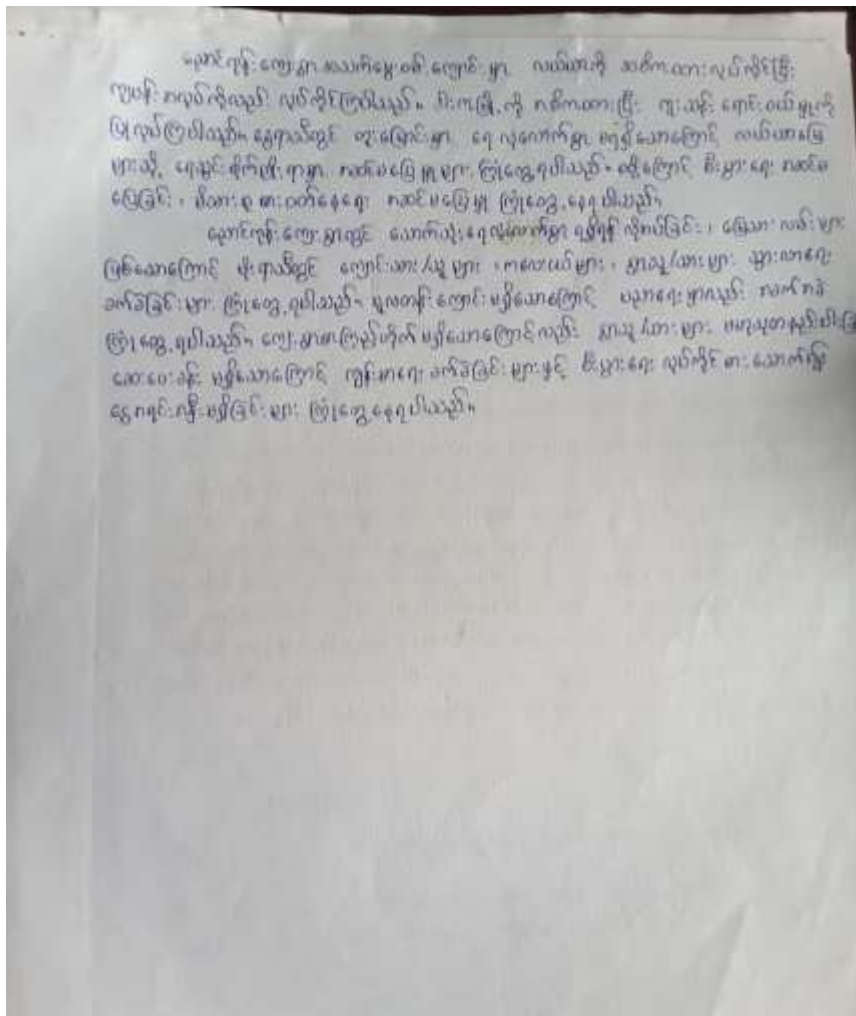 ညောင်ကုန်းကျေးရွာ အသက်မွေးဝမ်းကျောင်းမှာ လယ်ယာကို အဓိကထားလုပ်ကိုင်ပြီး
ကျပန်းအလုပ်ကိုလည်း လုပ်ကိုင်ကြပါသည်။ မီးကို အဓိကထားပြီး ကူးသန်းရောင်းဝယ်မှုကို
ပြုလုပ်ကြပါသည်။ နွေရာသီတွင် တူးမြောင်းမှာ ရေလုံလောက်စွာ မရရှိသောကြောင့် လယ်ယာမြေ
များသို့ ရေသွင်းစိုက်ပျိုးရာမှာ အဆင်မပြေမှုများ ကြုံတွေ့ရပါသည်။ ထို့ကြောင့် စီးပွားရေး အဆင်မ
ပြေခြင်း၊ မိသားစု စားဝတ်နေရေး အဆင်မပြေမှု ကြုံတွေ့နေရပါသည်။
ညောင်ကုန်းကျေးရွာတွင် သောက်သုံးရေလုံလောက်စွာ ရရှိရန် လိုအပ်ခြင်း၊ မြေသားလမ်းများ
ဖြစ်သောကြောင့် မိုးရာသီတွင် ကျောင်းသား/သူများ၊ ကလေးငယ်များ၊ ရွာသူ/သားများ သွားလာရေး
ခက်ခဲခြင်းများ ကြုံတွေ့ရပါသည်။ မူလတန်းကျောင်းမရှိသောကြောင့် ပညာရေးမှာလည်း အခက်အခဲ
ကြုံတွေ့ရပါသည်။ ကျေးရွာစာကြည့်တိုက် မရှိသောကြောင့်လည်း ရွာသူ/သားများ ဗဟုသုတနည်းပါး
ဆေးပေးခန်း မရှိသောကြောင့် ကျန်းမာရေး ခက်ခဲခြင်းများနှင့် စီးပွားရေး လုပ်ကိုင်စားသောက်ရန်
ငွေအရင်းအနှီးမရှိခြင်းများ ကြုံတွေ့နေရပါသည်။